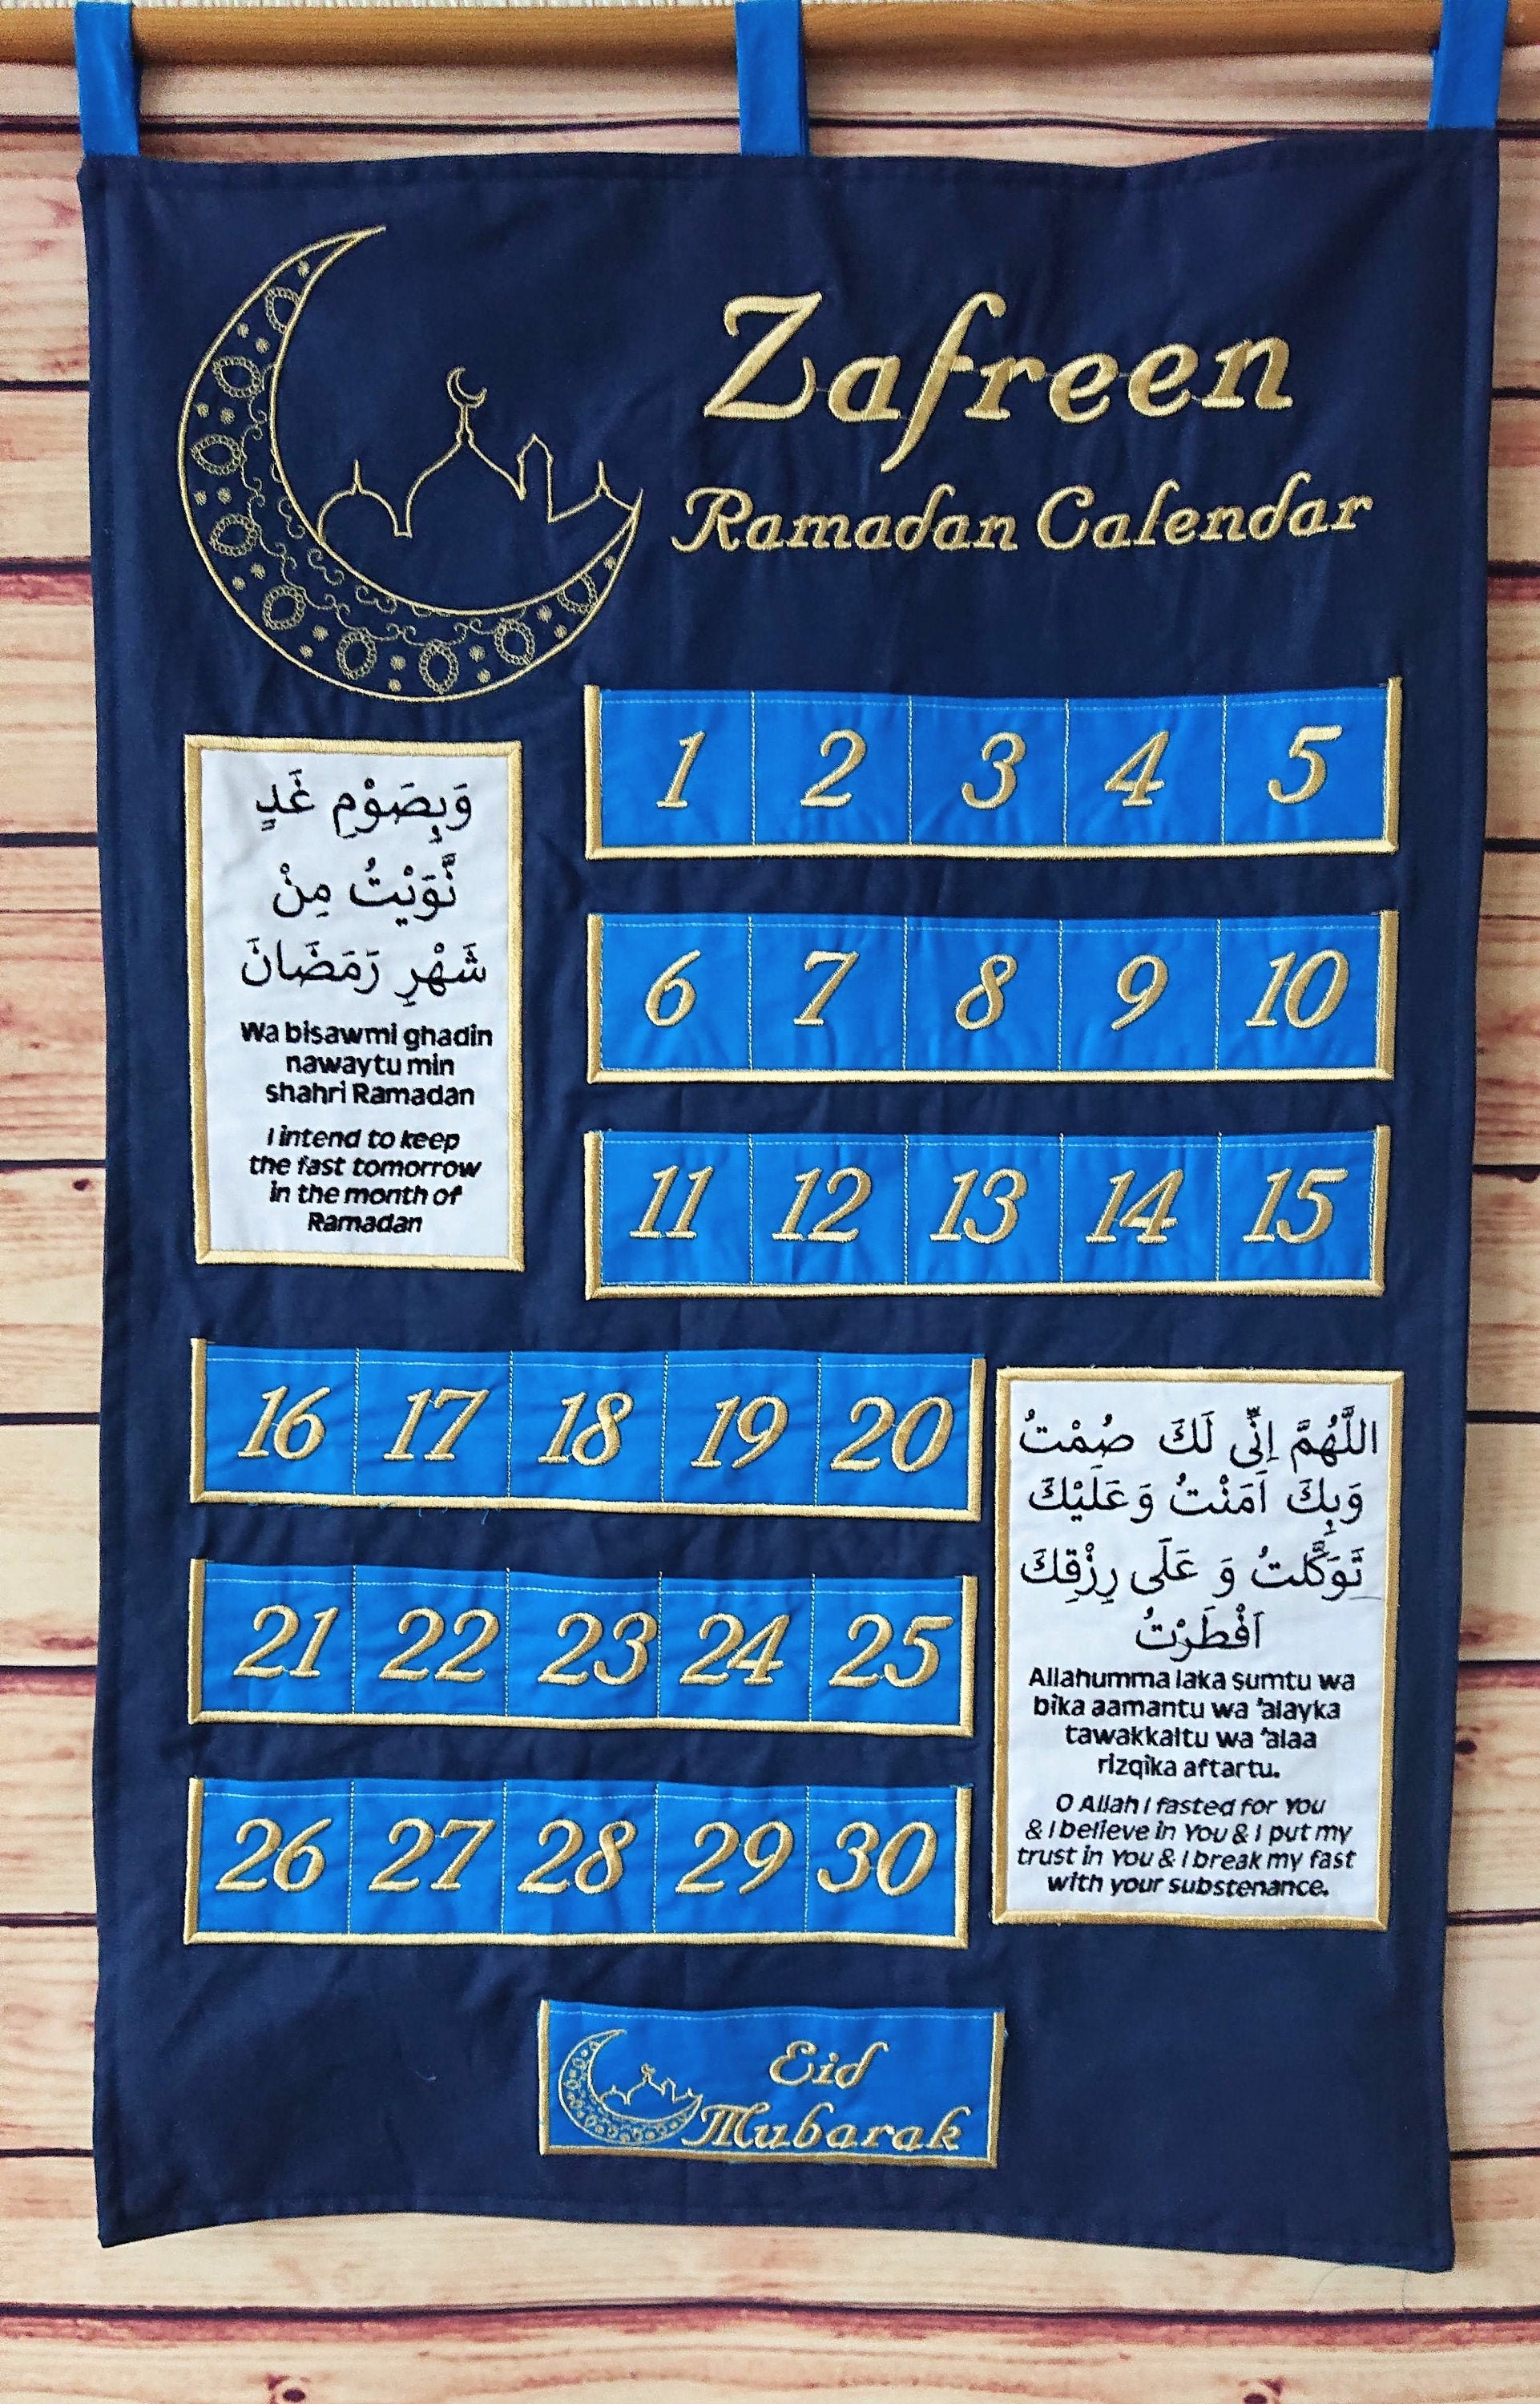 Zafreen
Ramadan Calendar
1 2 3 4 5
وَبِصَوْمِ غَدٍ
نَّوَيْتُ مِنْ
شَهْرِ رَمَضَانَ
Wa bisawmi ghadin
nawaytu min
shahri Ramadan
I intend to keep
the fast tomorrow
in the month of
Ramadan
6 7 8 9 10
11 12 13 14 15
16 17 18 19 20
21 22 23 24 25
26 27 28 29 30
اللَّهُمَّ اِنِّى لَكَ صُمْتُ
وَبِكَ اَمَنْتُ وَعَلَيْكَ
تَوَكَّلتُ وَ عَلَى رِزْقِكَ
اَفْطَرْتُ
Allahumma laka sumtu wa
bika aamantu wa 'alayka
tawakkaltu wa 'alaa
rizqika aftartu.
O Allah I fasted for You
& I believe in You & I put my
trust in You & I break my fast
with your substenance.
Eid
Mubarak